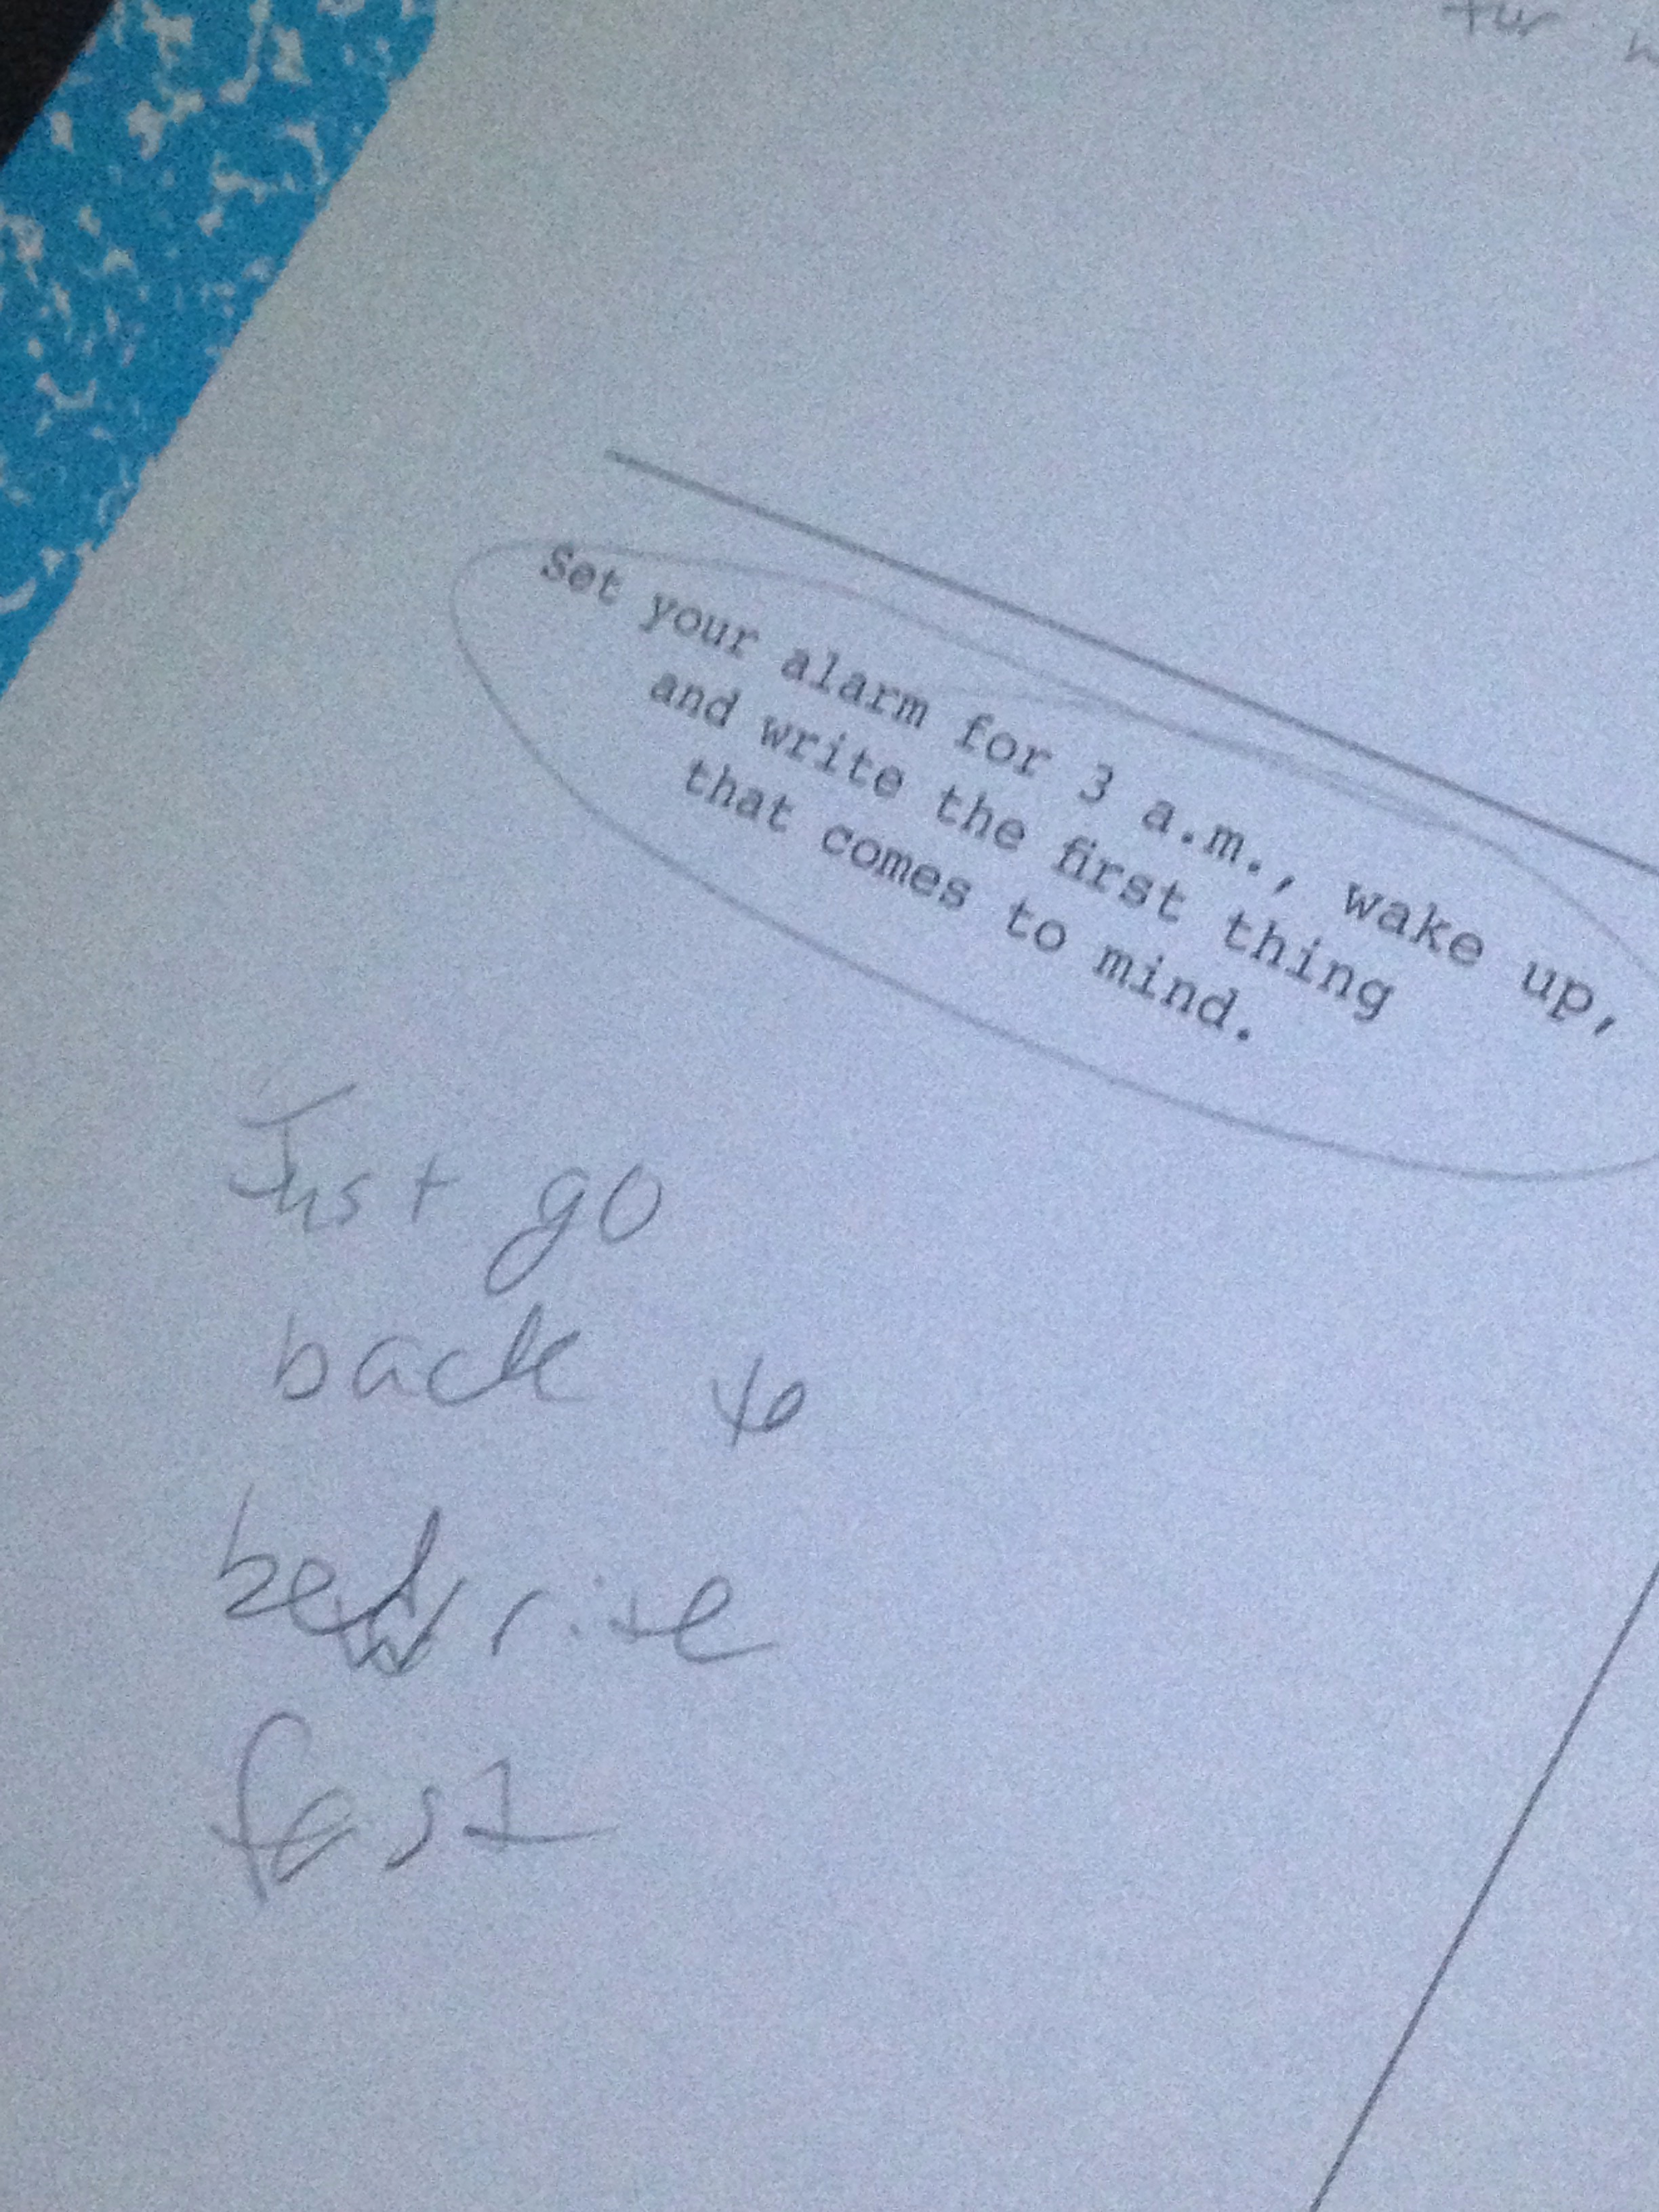 for
Set your alarm for 3 a.m., wake up,
and write the first thing
that comes to mind.
Just go
back to
bed write
fast